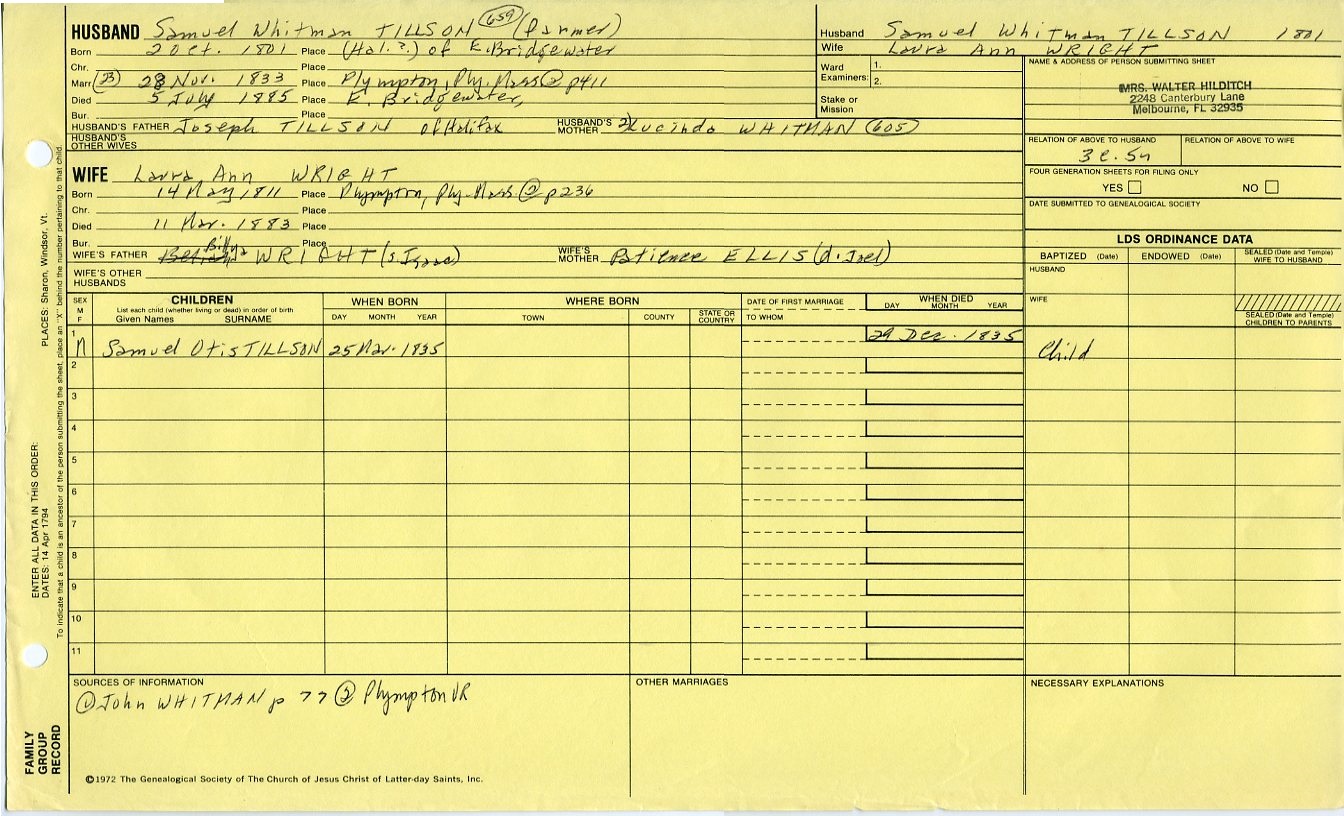 HUSBAND Samuel Whitman TILLSON (659) (Farmer)
Born 2 Oct. 1801 Place (Hal.?) of E. Bridgewater
Chr. Place
Marr (23) 28 Nov. 1833 Place Plympton, Ply. Mass ② p411
Died 5 July 1885 Place E. Bridgewater,
Bur. Place
HUSBAND'S FATHER Joseph TILLSON of Halifax HUSBAND'S MOTHER 2) Lucinda WHITMAN (605)
HUSBAND'S OTHER WIVES
WIFE Laura Ann WRIGHT
Born 14 May 1811 Place Plympton, Ply. Mass. ② p236
Chr. Place
Died 11 Mar. 1883 Place
Bur. Place
WIFE'S FATHER Billya WRIGHT (s. Isaac) WIFE'S MOTHER Patience ELLIS (d. Joel)
WIFE'S OTHER HUSBANDS
Husband Samuel Whitman TILLSON 1801
Wife Laura Ann WRIGHT
Ward Examiners: 1.
2.
Stake or Mission
NAME & ADDRESS OF PERSON SUBMITTING SHEET
MRS. WALTER HILDITCH
2248 Canterbury Lane
Melbourne, FL 32935
RELATION OF ABOVE TO HUSBAND RELATION OF ABOVE TO WIFE
3c. 5r
FOUR GENERATION SHEETS FOR FILING ONLY
YES NO
DATE SUBMITTED TO GENEALOGICAL SOCIETY
LDS ORDINANCE DATA
BAPTIZED (Date) ENDOWED (Date) SEALED (Date and Temple) WIFE TO HUSBAND
HUSBAND
WIFE
SEALED (Date and Temple) CHILDREN TO PARENTS
SEX M F CHILDREN WHEN BORN WHERE BORN DATE OF FIRST MARRIAGE WHEN DIED
List each child (whether living or dead) in order of birth
Given Names SURNAME DAY MONTH YEAR TOWN COUNTY STATE OR COUNTRY TO WHOM DAY MONTH YEAR
1 M Samuel Otis TILLSON 25 Mar. 1835 29 Dec. 1835 Child
2
3
4
5
6
7
8
9
10
11
SOURCES OF INFORMATION
① John WHITMAN p 77 ② Plympton VR
OTHER MARRIAGES
NECESSARY EXPLANATIONS
©1972 The Genealogical Society of The Church of Jesus Christ of Latter-day Saints, Inc.
FAMILY GROUP RECORD
ENTER ALL DATA IN THIS ORDER:
DATES: 14 Apr 1794
PLACES: Sharon, Windsor, Vt.
To indicate that a child is an ancestor of the person submitting the sheet, place an "X" behind the number pertaining to that child.